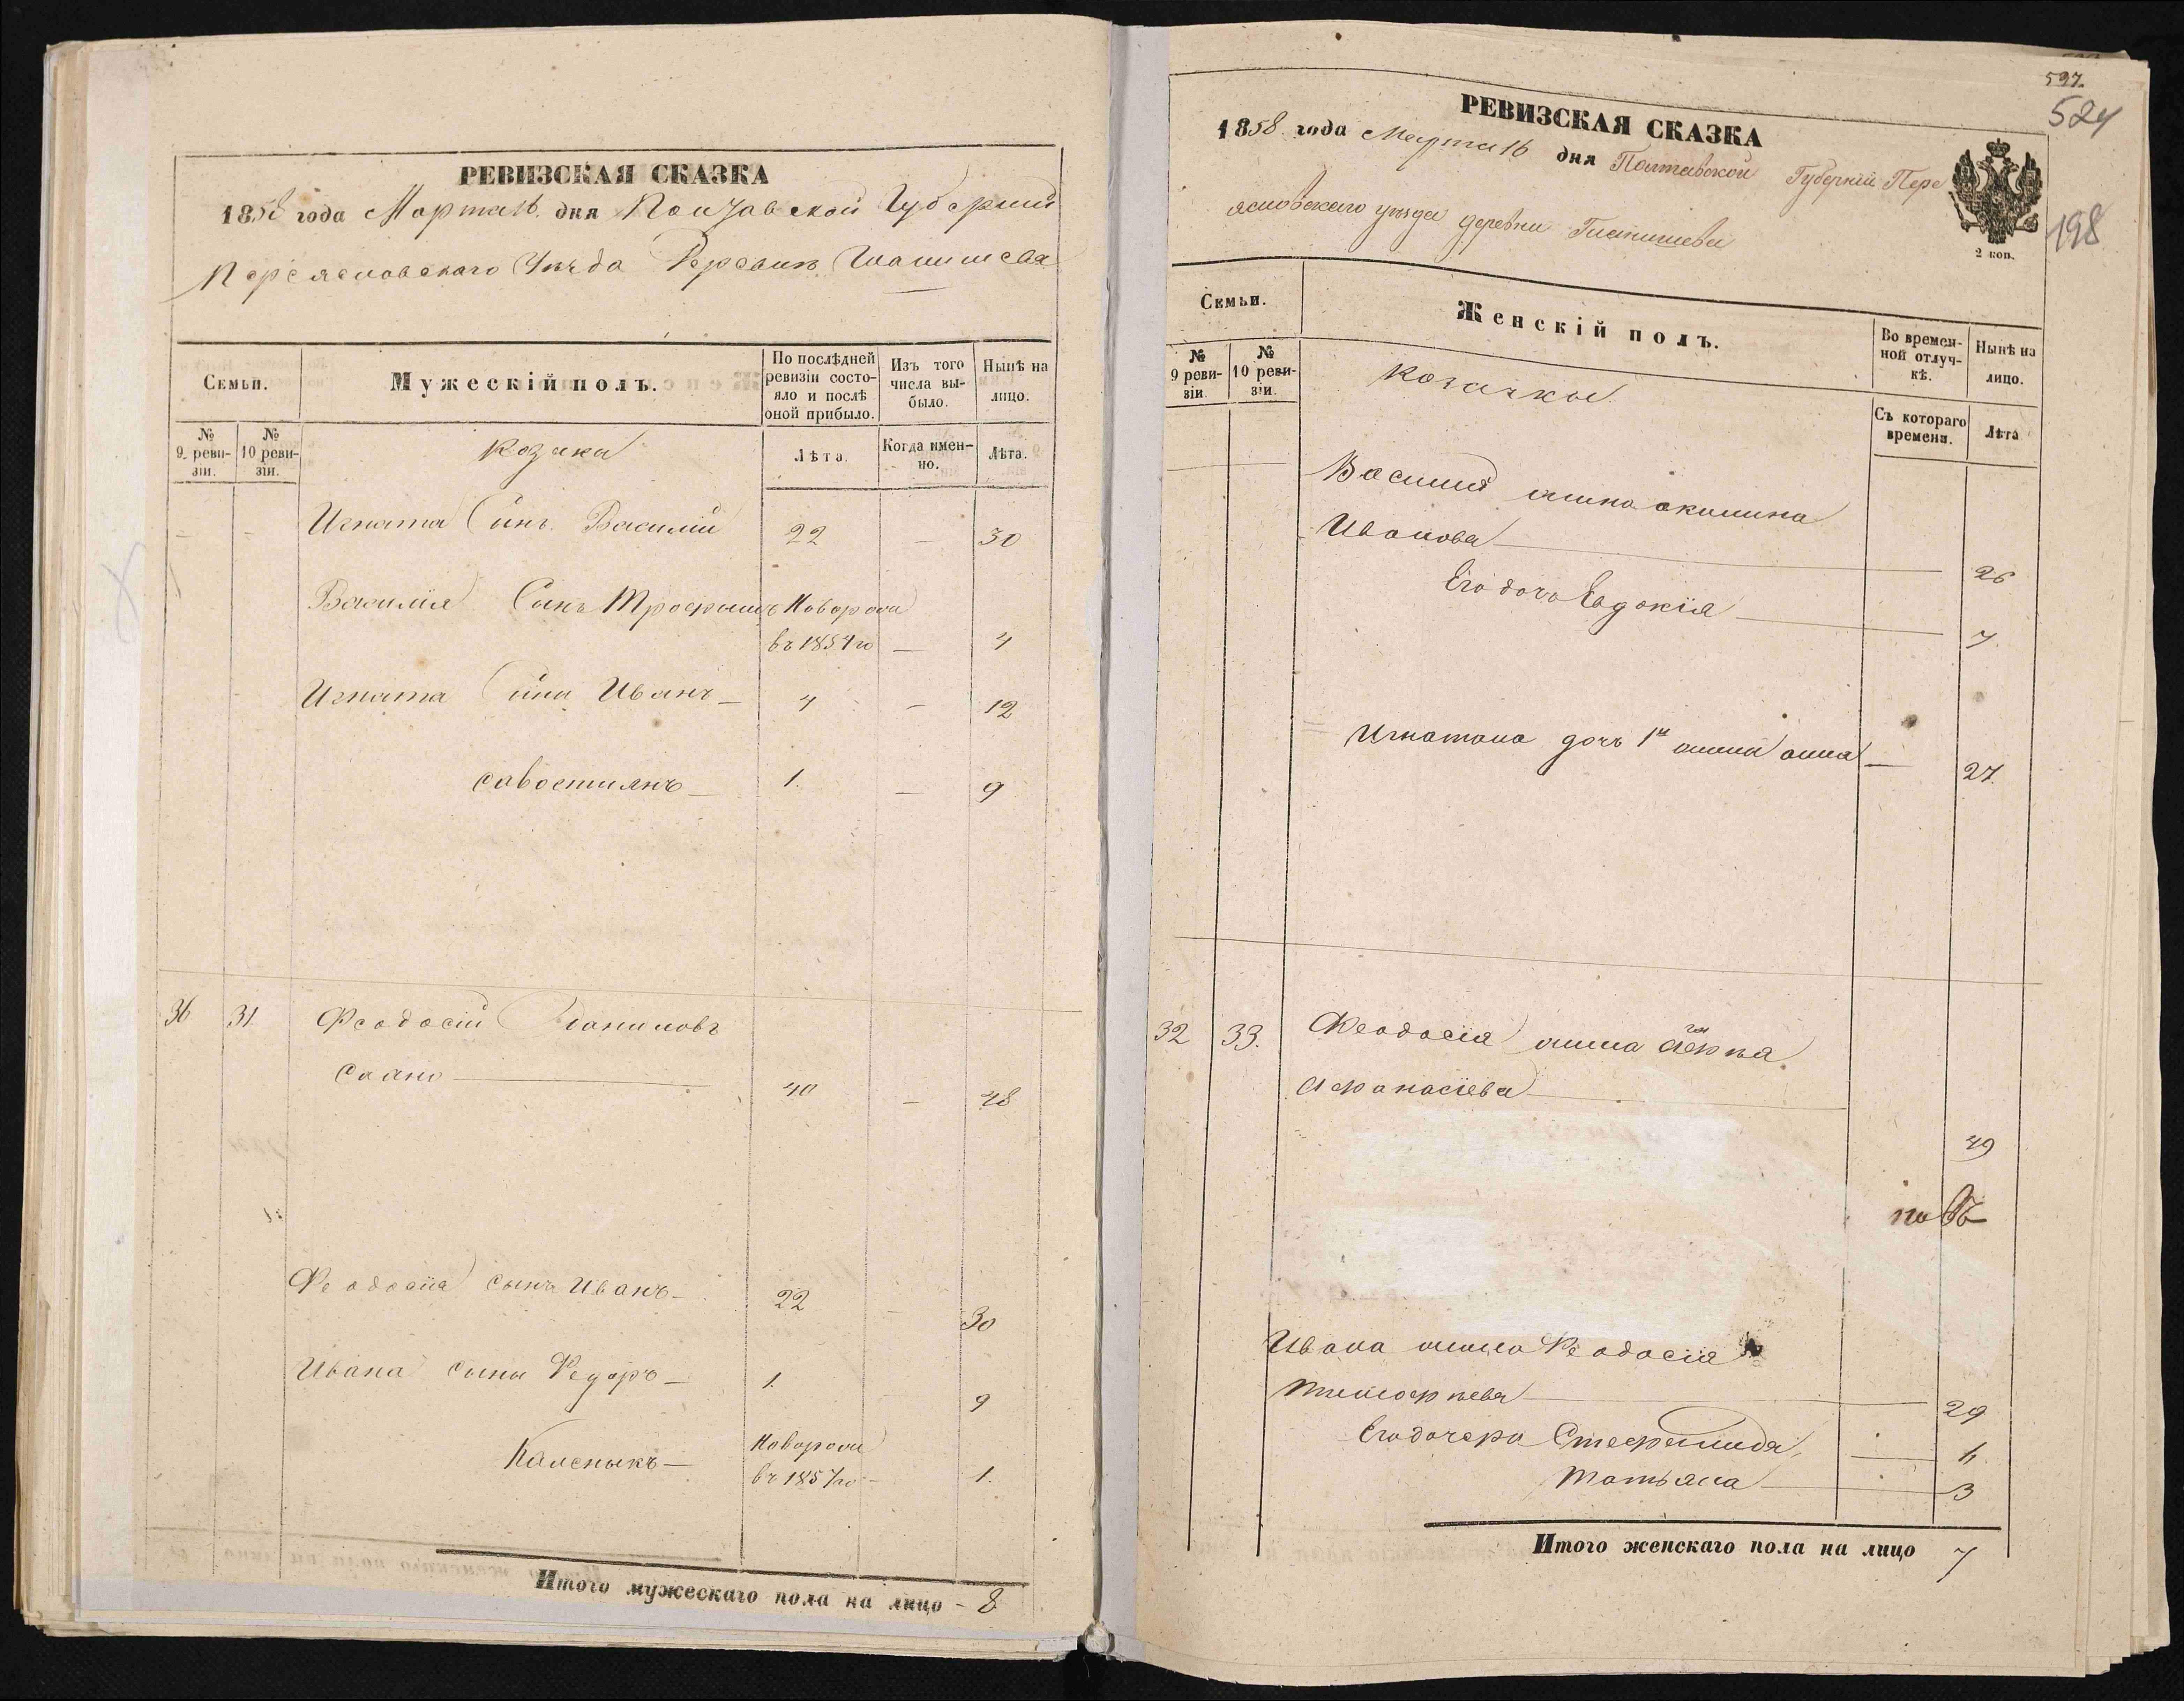 РЕВИЗСКАЯ СКАЗКА
1858 года Марта 16. дня Полтавской Губерніи
Переясловскаго Уѣзда Деревни
Семьи.
Мужескій полъ.
По послѣдней ревизіи состояло и послѣ оной прибыло.
Изъ того числа выбыло.
Нынѣ на лицо.
№ 9. ревизіи.
№ 10 ревизіи.
Козаки
Лѣта.
Когда именно.
Лѣта.
Игната Сынъ Василій 22 — 30
Василія Сынъ Трофимъ Новорож
въ 1854го — 4
Игната Сыны Иванъ — 4 — 12
Савостиянъ — 1. — 9
36 31. Феодосій Даниловъ
40 — 48
Феодосія сынъ Иванъ — 22 — 30
Ивана сыны Федоръ — 1. 9
Каленыкъ — Новорож
въ 1857го — 1.
Итого мужескаго пола на лицо — 8
597.
524
198
РЕВИЗСКАЯ СКАЗКА
1858 года Марта 16 дня Полтавской Губерніи Пере
ясловскаго уѣзда деревни
2 коп.
Семьи.
Женскій полъ.
Во временной отлучкѣ.
Нынѣ на лицо.
№ 9 ревизіи.
№ 10 ревизіи.
Козачкы
Съ котораго времени.
Лѣта
Василія жина акилина
Иванова — 26
Его дочь Евдокія — 7.
Игнатова дочь 1й жины анна — 27.
32 33. Феодосія жина
Афанасіева — 49
Ивана жина Феодосія
Тимофѣева — 29
Его дочери Стефанида — 6
Татьяна — 3
Итого женскаго пола на лицо 7